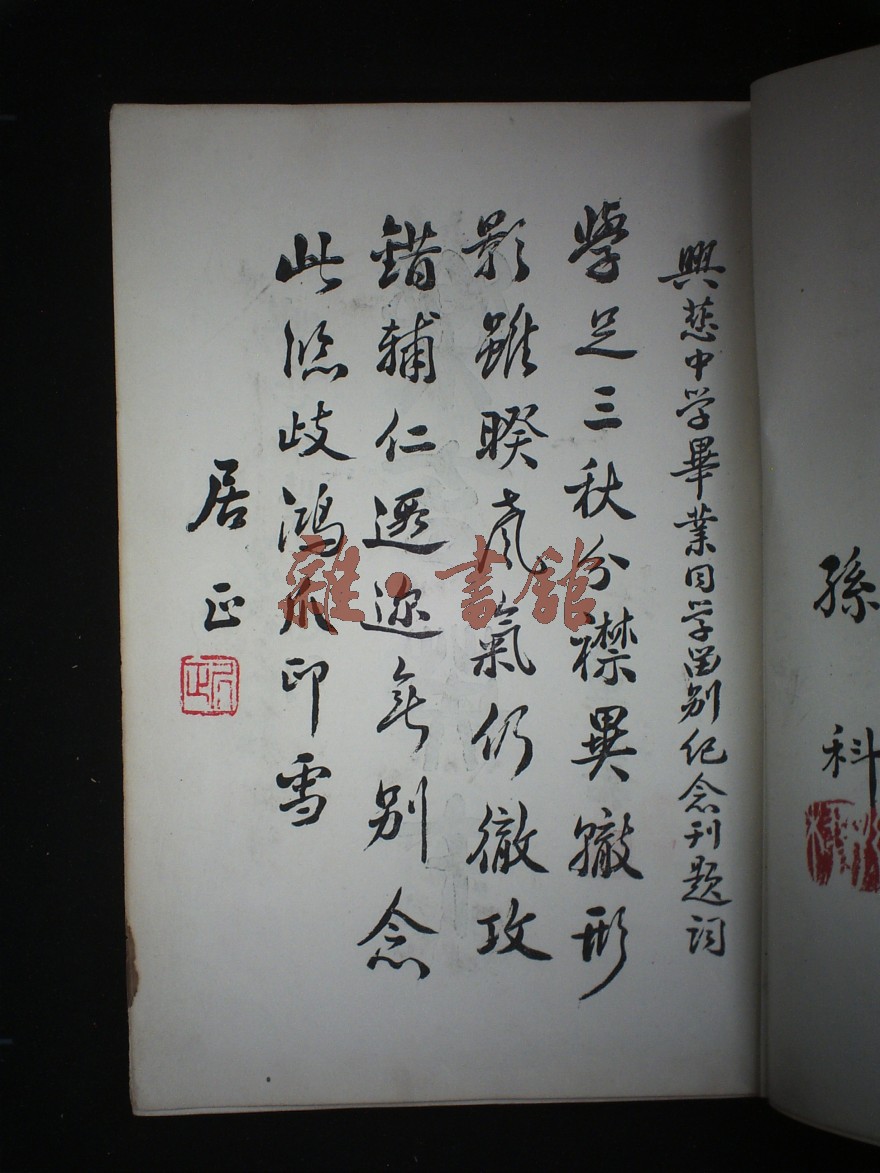 孫科
興慈中学畢業同学畄别纪念刊题词
學足三秋分襟異轍形
影雖暌声氣仍徹攻
錯輔仁遐迩無别念
此臨歧鴻爪印雪
居正
居正
雜·書舘